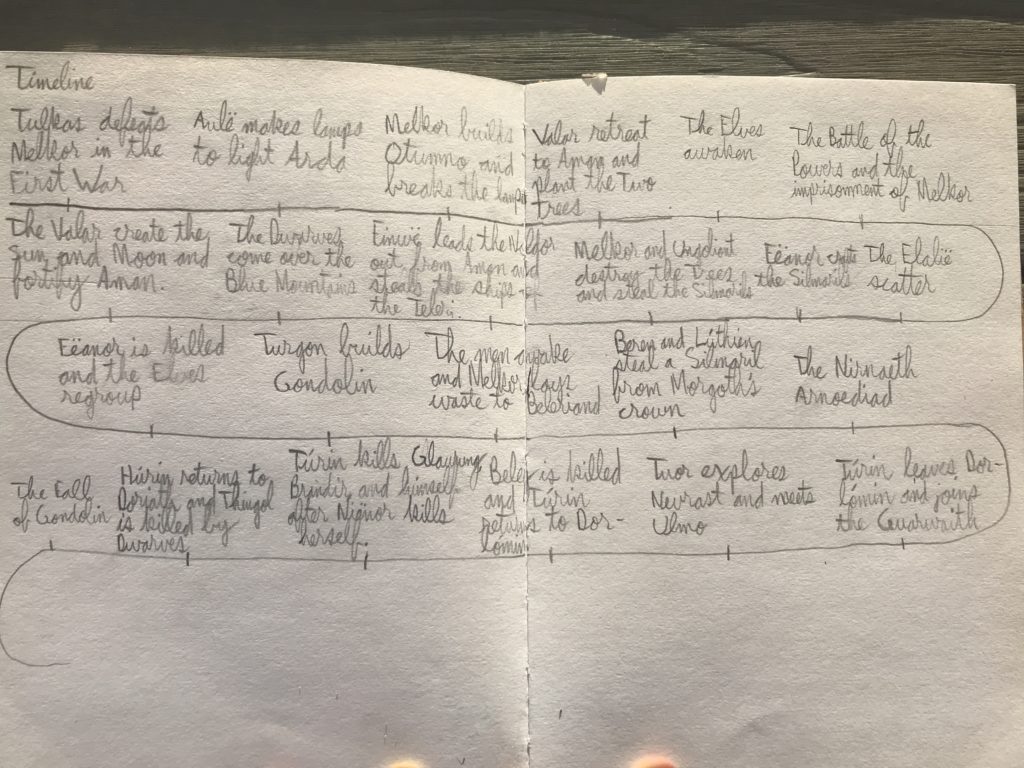 Timeline
Tulkas defeats
Melkor in the
First War
Aulë makes lamps
to light Arda
Melkor builds
Utumno and
breaks the lamps
Valar retreat
to Aman and
plant the Two
Trees
The Elves
awaken
The Battle of the
Powers and the
imprisonment of Melkor
The Valar create the
Sun and Moon and
fortify Aman.
The Dwarves
come over the
Blue Mountains
Finwë leads the Noldor
out from Aman and
steals the ships of
the Teleri.
Melkor and Ungoliant
destroy the Trees
and steal the Silmarils
Fëanor
the Silmarils
The Elalië
scatter
Fëanor is killed
and the Elves
regroup
Turgon builds
Gondolin
The men awake
and Melkor lays
waste to Beleriand
Beren and Lúthien
steal a Silmaril
from Morgoth's
crown
The Nirnaeth
Arnoediad
The Fall
of Gondolin
Húrin returns to
Doriath and Thingol
is killed by
Dwarves
Túrin kills Glaurung,
Brandir, and himself
after Nienor kills
herself.
Beleg is killed
and Túrin
returns to Dor-
lómin
Tuor explores
Nevrast and meets
Ulmo
Túrin leaves Dor-
lómin and joins
the Guarwaith